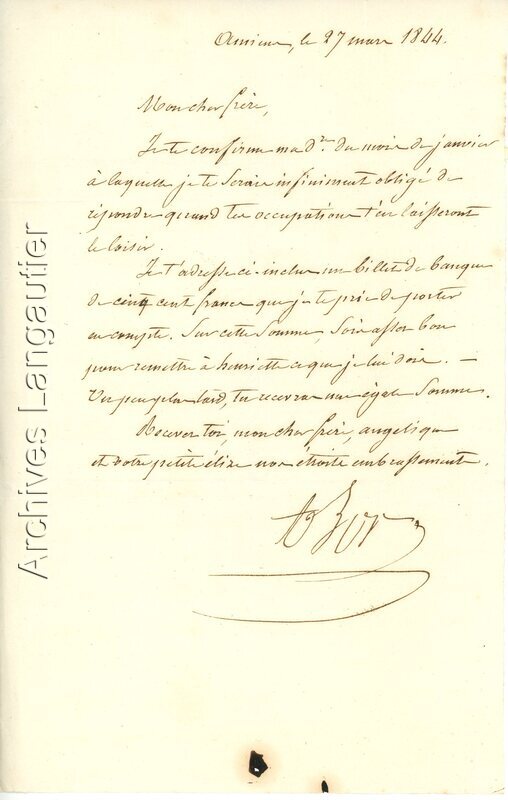 Amiens, le 27 mars 1844.
Mon cher frère,
Je te confirme ma d.re du mois de janvier
à laquelle je te serais infiniment obligé de
répondre quand tes occupations t'en laisseront
le loisir.
Je t'adresse ci-inclus un billet de banque
de cinq cent francs que je te prie de porter
en compte. Sur cette somme, sois assez bon
pour remettre à henriette ce que je lui dois. —
Un peu plus tard, tu recevras une égale somme.
Recevez toi, mon cher frère, angelique
et votre petite élize nos étroits embrassements.
Archives Langautier